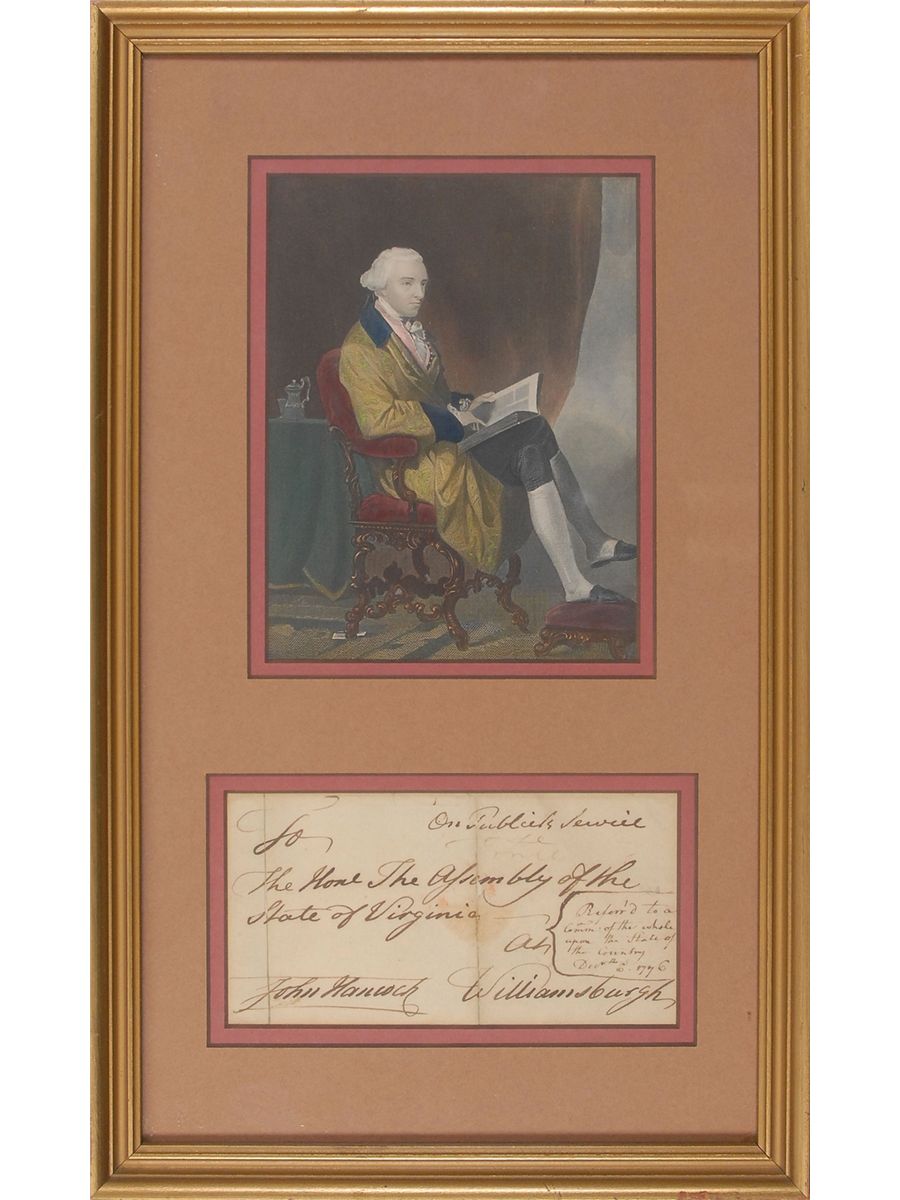 On Publick Service
To
The Honl. The Assembly of the
State of Virginia
At
Referr'd to a
Commee. of the whole
upon the State of
the Country
Decr. 1776
John Hancock Williamsburgh